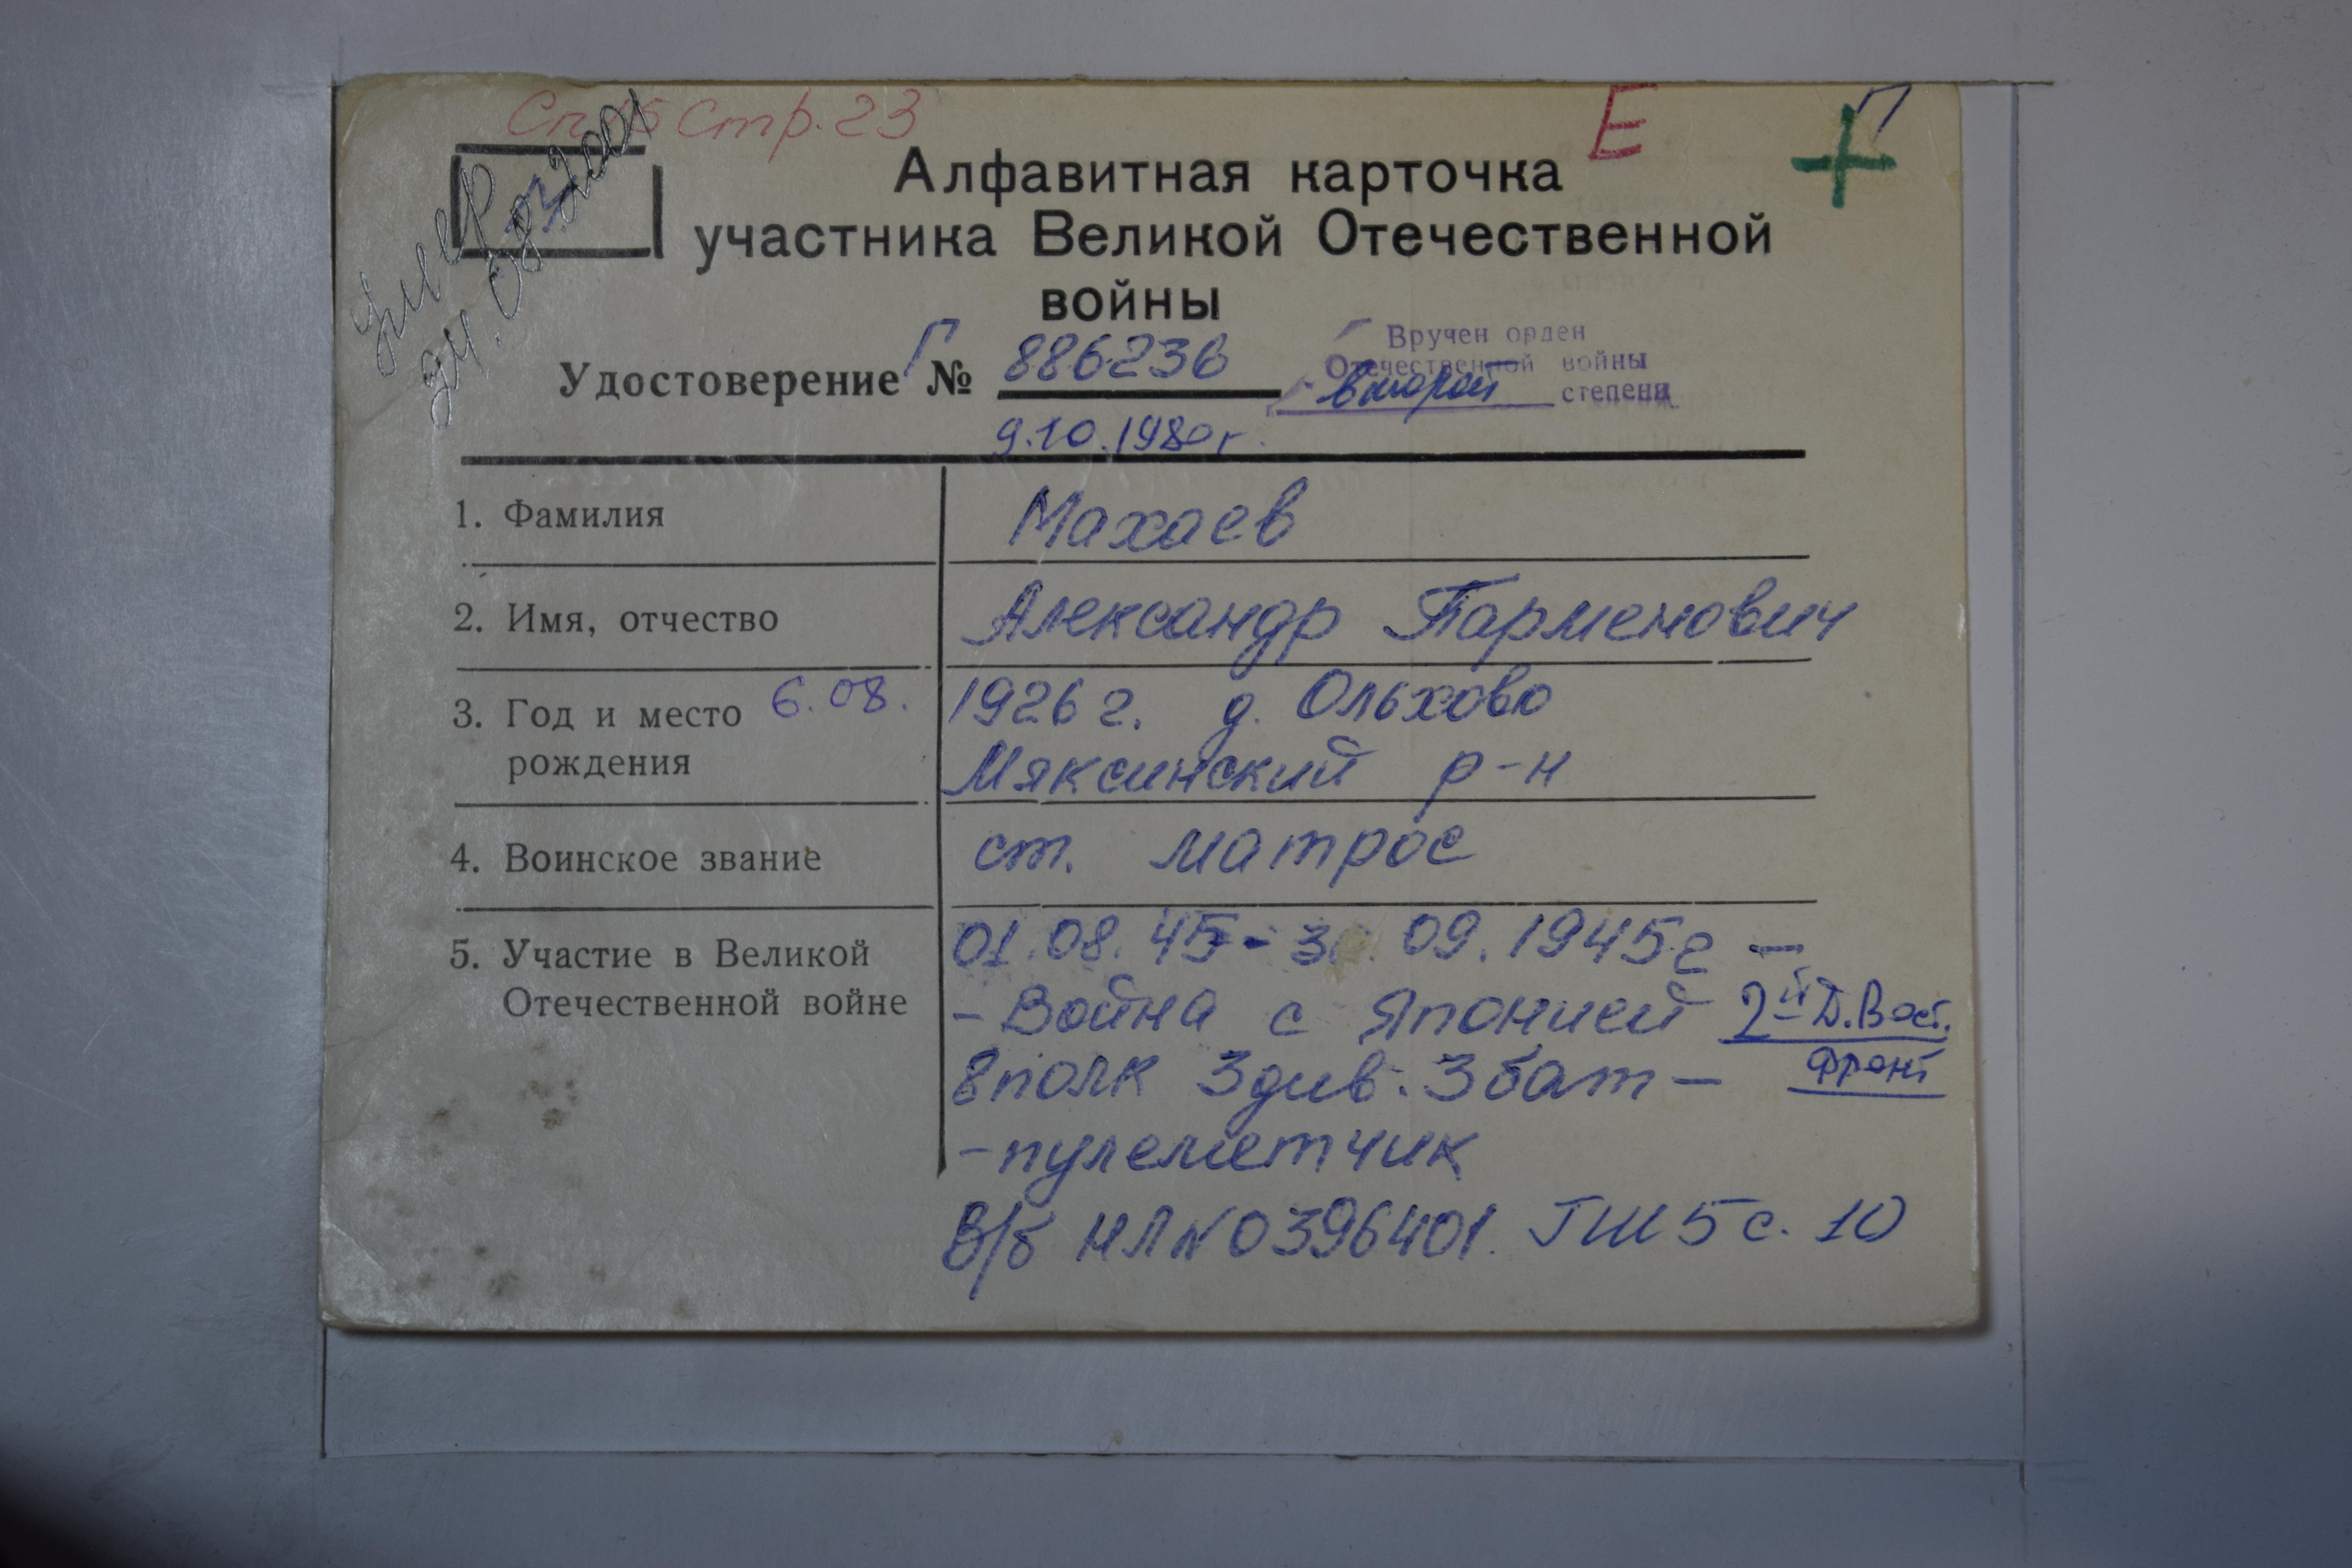 Сп 15 стр. 23
Е
П
умер
24.08.2001
Алфавитная карточка
участника Великой Отечественной
войны
Удостоверение Г № 886236
Вручен орден
Отечественной войны
второй степени
9.10.1980 г.
1. Фамилия Махаев
2. Имя, отчество Александр Парменович
3. Год и место 6.08. 1926 г. д. Ольхово
рождения Мяксинский р-н
4. Воинское звание ст. матрос
5. Участие в Великой 01.08.45 - 3 . 09. 1945 г –
Отечественной войне – Война с Японией 2й Д. Вост.
фронт
8 полк 3 див. 3 бат –
– пулеметчик
В/б НЛ № 0396401. ГШ 5 с. 10